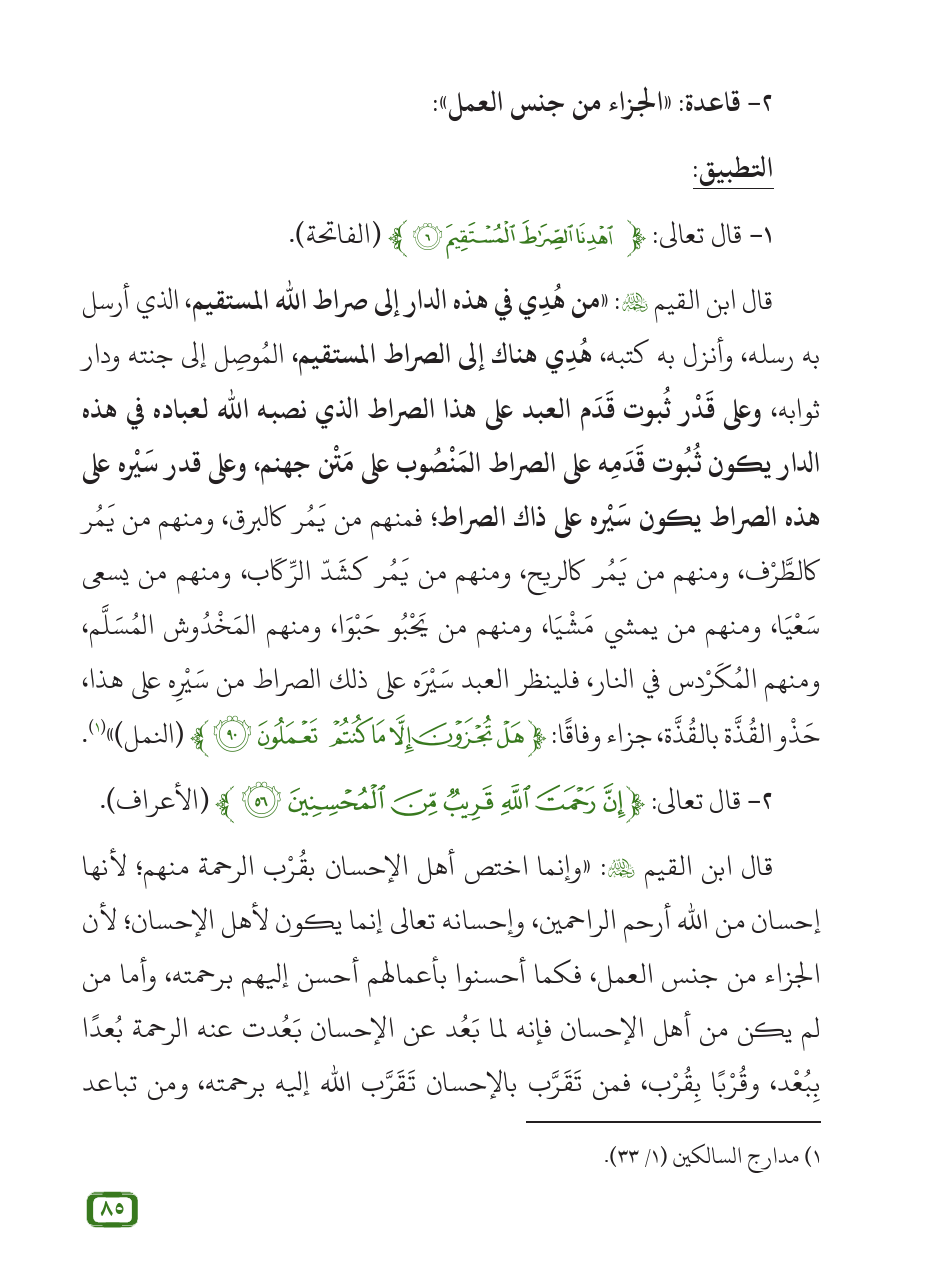 ٢- قاعدة: «الجزاء من جنس العمل»:
التطبيق:
١- قال تعالى: ﴿ ٱهْدِنَا ٱلصِّرَٰطَ ٱلْمُسْتَقِيمَ ٦ ﴾ (الفاتحة).
قال ابن القيم ﵀: «من هُدِي في هذه الدار إلى صراط الله المستقيم، الذي أرسل
به رسله، وأنزل به كتبه، هُدِي هناك إلى الصراط المستقيم، المُوصِل إلى جنته ودار
ثوابه، وعلى قَدْر ثُبوت قَدَم العبد على هذا الصراط الذي نصبه الله لعباده في هذه
الدار يكون ثُبُوت قَدَمِه على الصراط المَنْصُوب على مَتْن جهنم، وعلى قدر سَيْره على
هذه الصراط يكون سَيْره على ذاك الصراط؛ فمنهم من يَمُر كالبرق، ومنهم من يَمُر
كالطَّرْف، ومنهم من يَمُر كالريح، ومنهم من يَمُر كشَدّ الرِّكَاب، ومنهم من يسعى
سَعْيَا، ومنهم من يمشي مَشْيَا، ومنهم من يَحْبُو حَبْوَا، ومنهم المَخْدُوش المُسَلَّم،
ومنهم المُكَرْدس في النار، فلينظر العبد سَيْرَه على ذلك الصراط من سَيْرِه على هذا،
حَذْو القُذَّة بالقُذَّة، جزاء وفاقًا: ﴿ هَلْ تُجْزَوْنَ إِلَّا مَا كُنتُمْ تَعْمَلُونَ ٩٠ ﴾ (النمل)»(١).
٢- قال تعالى: ﴿ إِنَّ رَحْمَتَ ٱللَّهِ قَرِيبٌ مِّنَ ٱلْمُحْسِنِينَ ٥٦ ﴾ (الأعراف).
قال ابن القيم ﵀: «وإنما اختص أهل الإحسان بقُرْب الرحمة منهم؛ لأنها
إحسان من الله أرحم الراحمين، وإحسانه تعالى إنما يكون لأهل الإحسان؛ لأن
الجزاء من جنس العمل، فكما أحسنوا بأعمالهم أحسن إليهم برحمته، وأما من
لم يكن من أهل الإحسان فإنه لما بَعُد عن الإحسان بَعُدت عنه الرحمة بُعدًا
بِبُعْد، وقُرْبًا بِقُرْب، فمن تَقَرَّب بالإحسان تَقَرَّب الله إليه برحمته، ومن تباعد
١) مدارج السالكين (١/ ٣٣).
٨٥